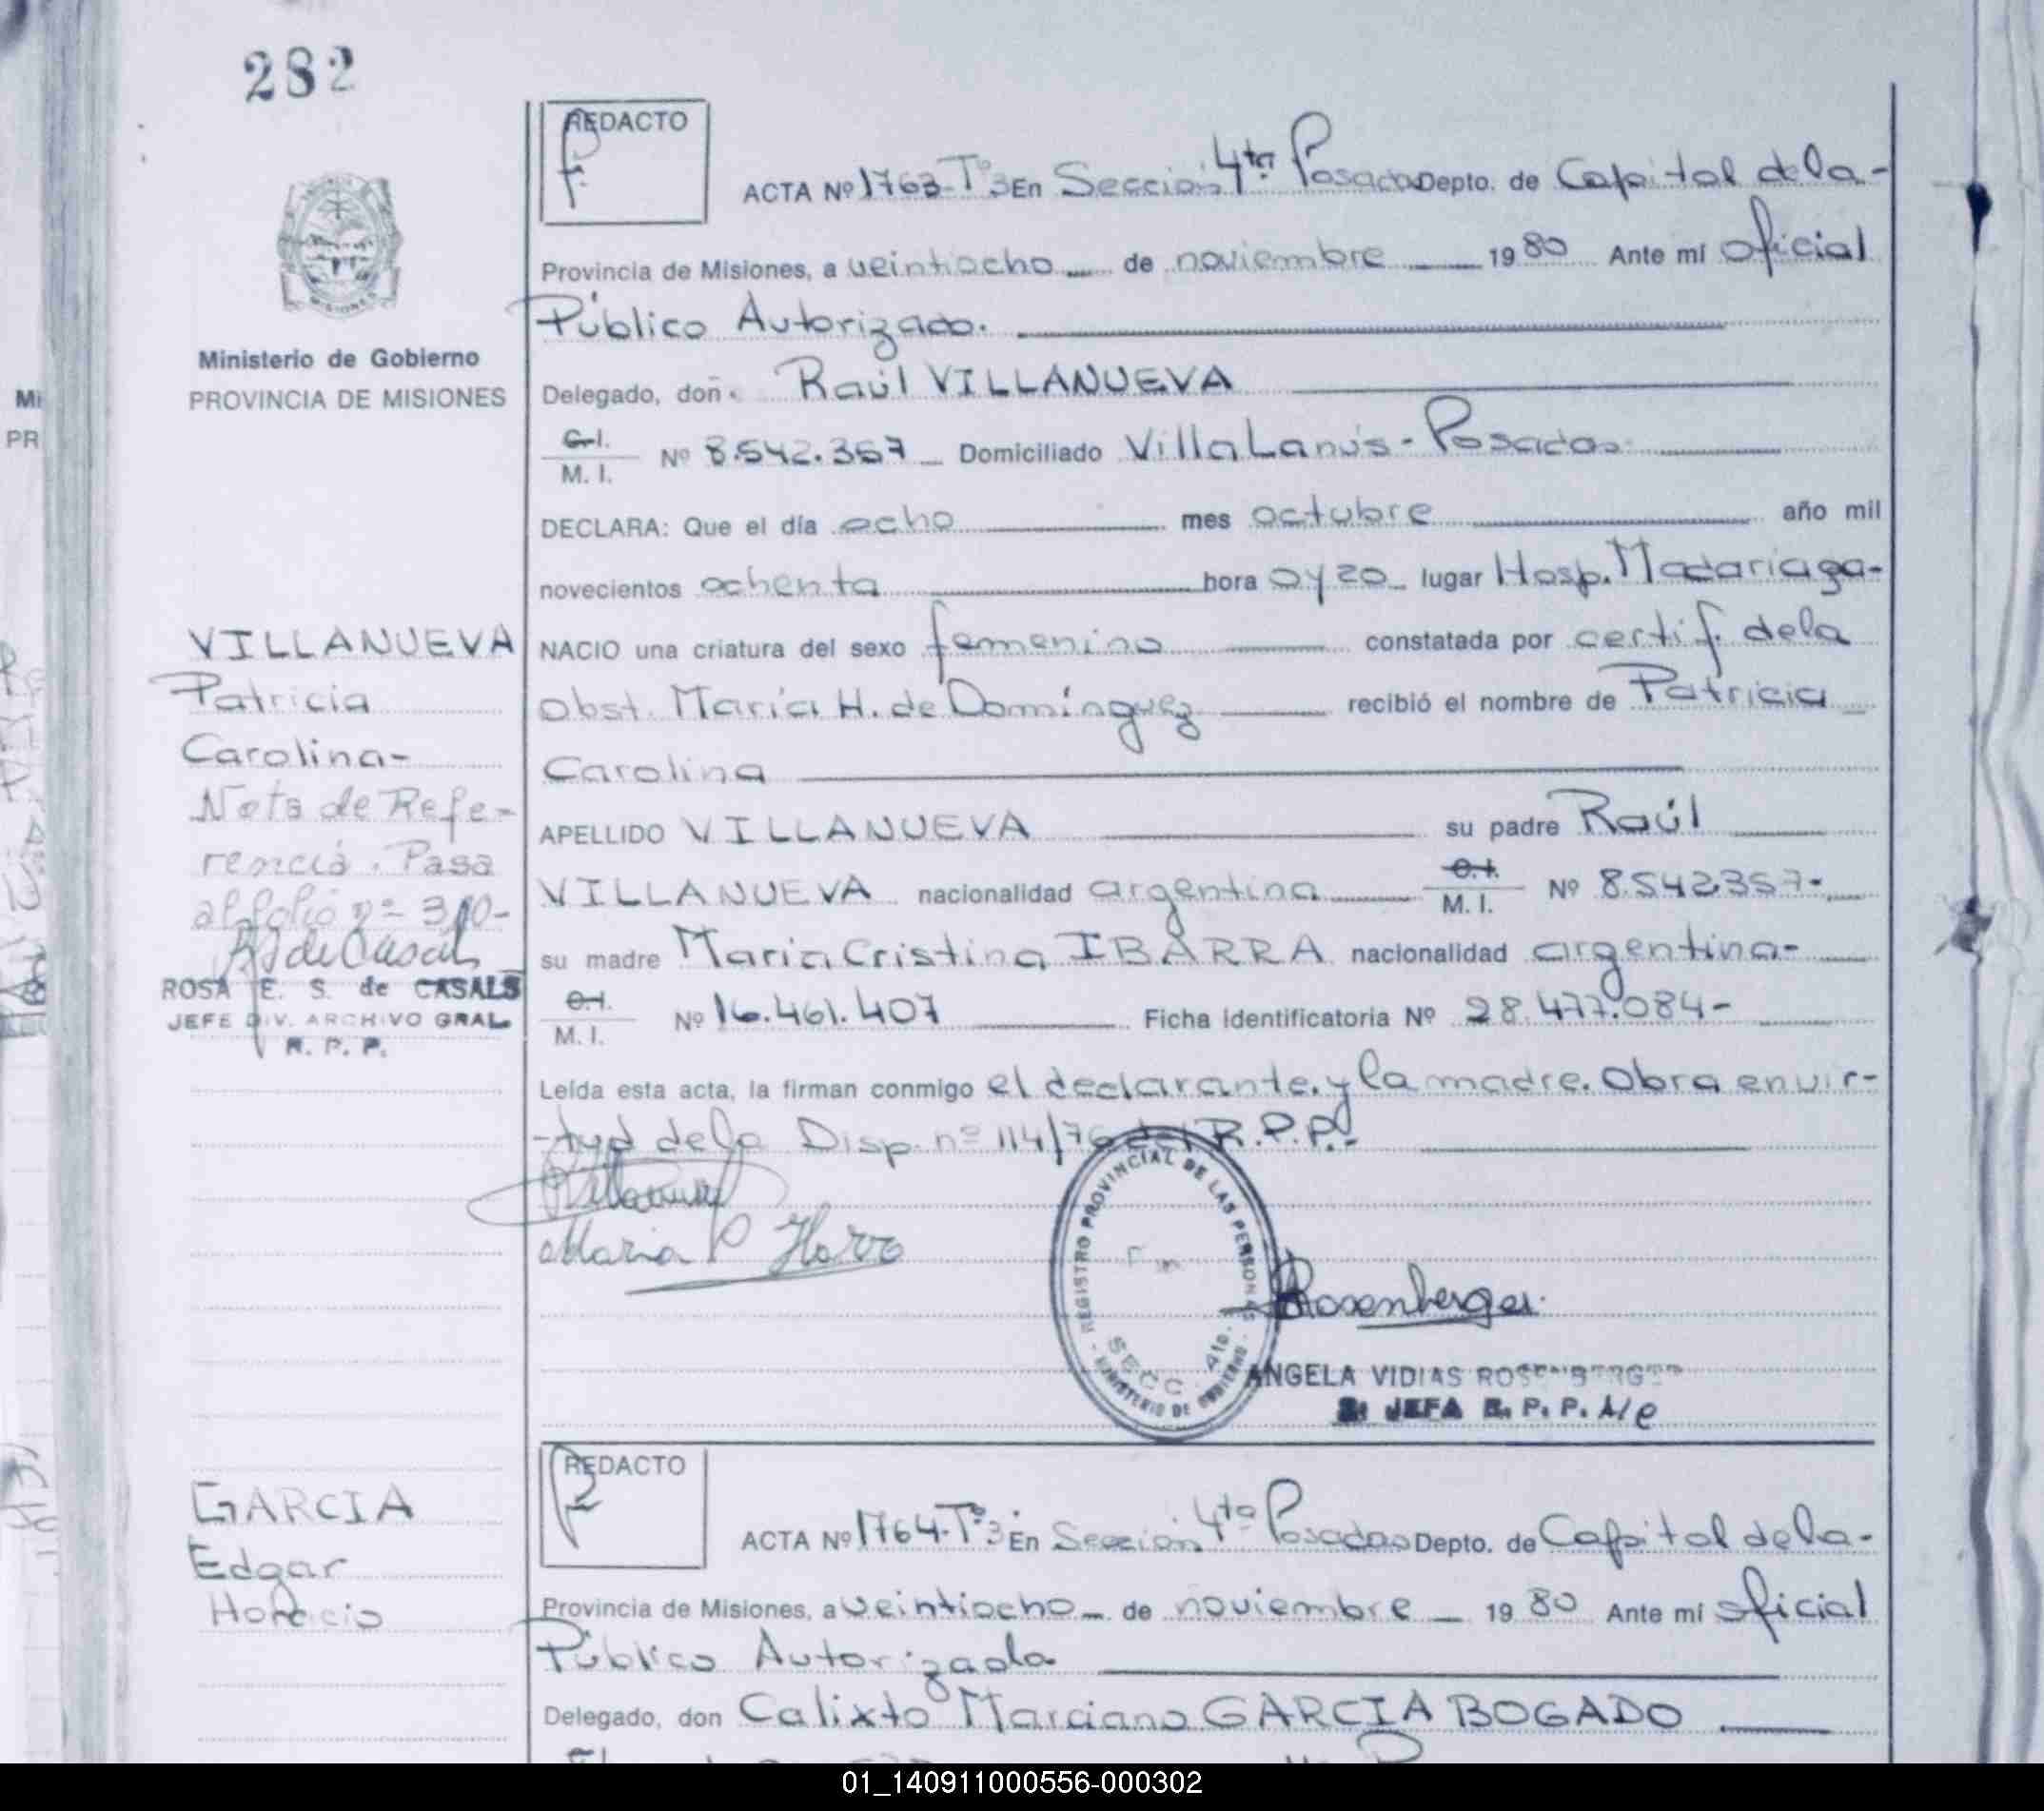 282
REDACTO
ACTA Nº 1763-Tº3 En Sección 4ta Posadas Depto. de Capital de la-
Provincia de Misiones, a veintiocho de noviembre 1980 Ante mí oficial
Público Autorizado.
Ministerio de Gobierno
PROVINCIA DE MISIONES
Delegado, don Raúl VILLANUEVA
C.I. M. I. Nº 8.542.357 Domiciliado Villa Lanús - Posadas
DECLARA: Que el día ocho mes octubre año mil
novecientos ochenta hora 0y20 lugar Hosp. Madariaga-
VILLANUEVA
Patricia
Carolina-
Nota de Refe-
rencia. Pasa
al folio nº 310-
ROSA E. S. de CASALS
JEFE DIV. ARCHIVO GRAL
R. P. P.
NACIO una criatura del sexo femenino constatada por certif. de la
Obst. María H. de Domínguez recibió el nombre de Patricia
Carolina
APELLIDO VILLANUEVA su padre Raúl
VILLANUEVA nacionalidad argentina C.I. M. I. Nº 8.542.357-
su madre María Cristina IBARRA nacionalidad argentina-
C.I. M. I. Nº 16.461.407 Ficha identificatoria Nº 28.477.084-
Leída esta acta, la firman conmigo el declarante y la madre. Obra en vir-
-tud de la Disp. nº 114/76 del R.P.P.-
REGISTRO PROVINCIAL DE LAS PERSONAS
SECC 4ta.
- MINISTERIO DE GOBIERNO -
Rosenberger
ANGELA VIDIAS ROSENBERGER
JEFA R. P. P. A/c
GARCIA
Edgar
Horacio
REDACTO
ACTA Nº 1764-Tº3 En Sección 4ta Posadas Depto. de Capital de la-
Provincia de Misiones, a veintiocho de noviembre 1980 Ante mí oficial
Público Autorizada
Delegado, don Calixto Marciano GARCIA BOGADO
Mi
PR
01_140911000556-000302